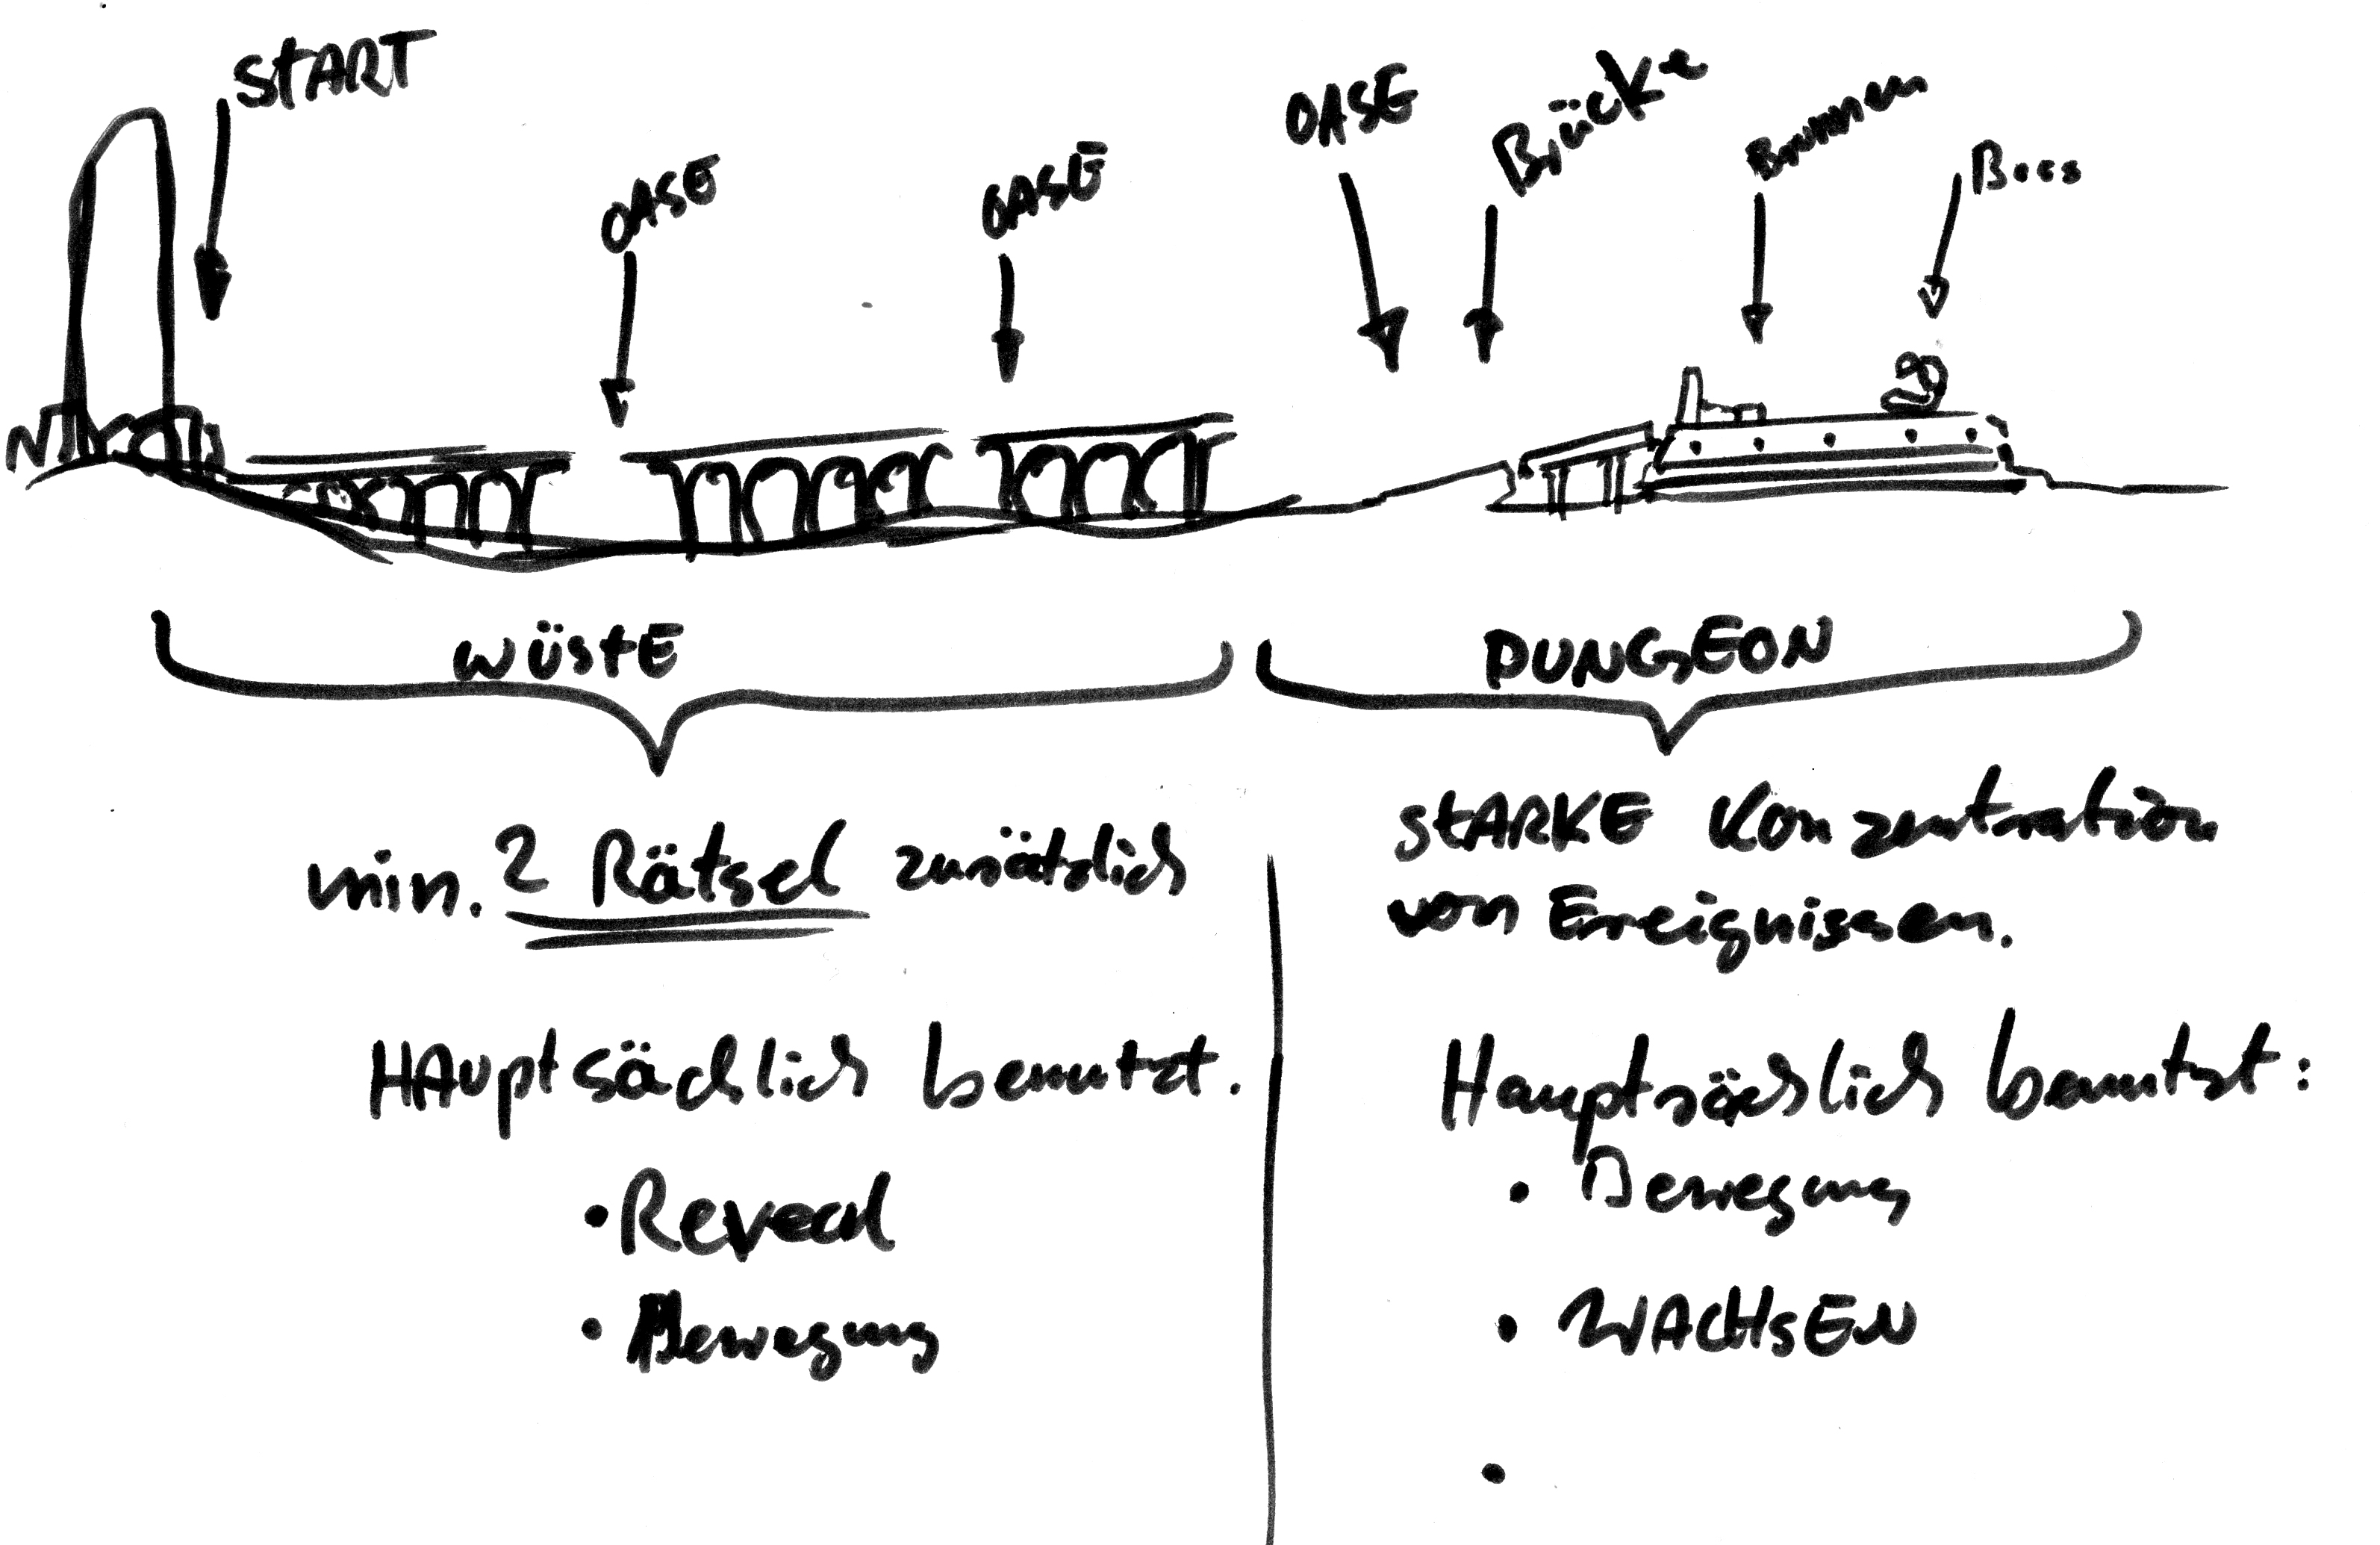 START
OASE
OASE
OASE
Brücke
Brunnen
Boss
WÜSTE
DUNGEON
min. 2 Rätsel zusätzlich
HAuptsächlich benutzt.
• Reveal
• Bewegung
STARKE Konzentration
von Ereignissen.
Hauptsächlich benutzt:
• Bewegung
• WACHSEN
•